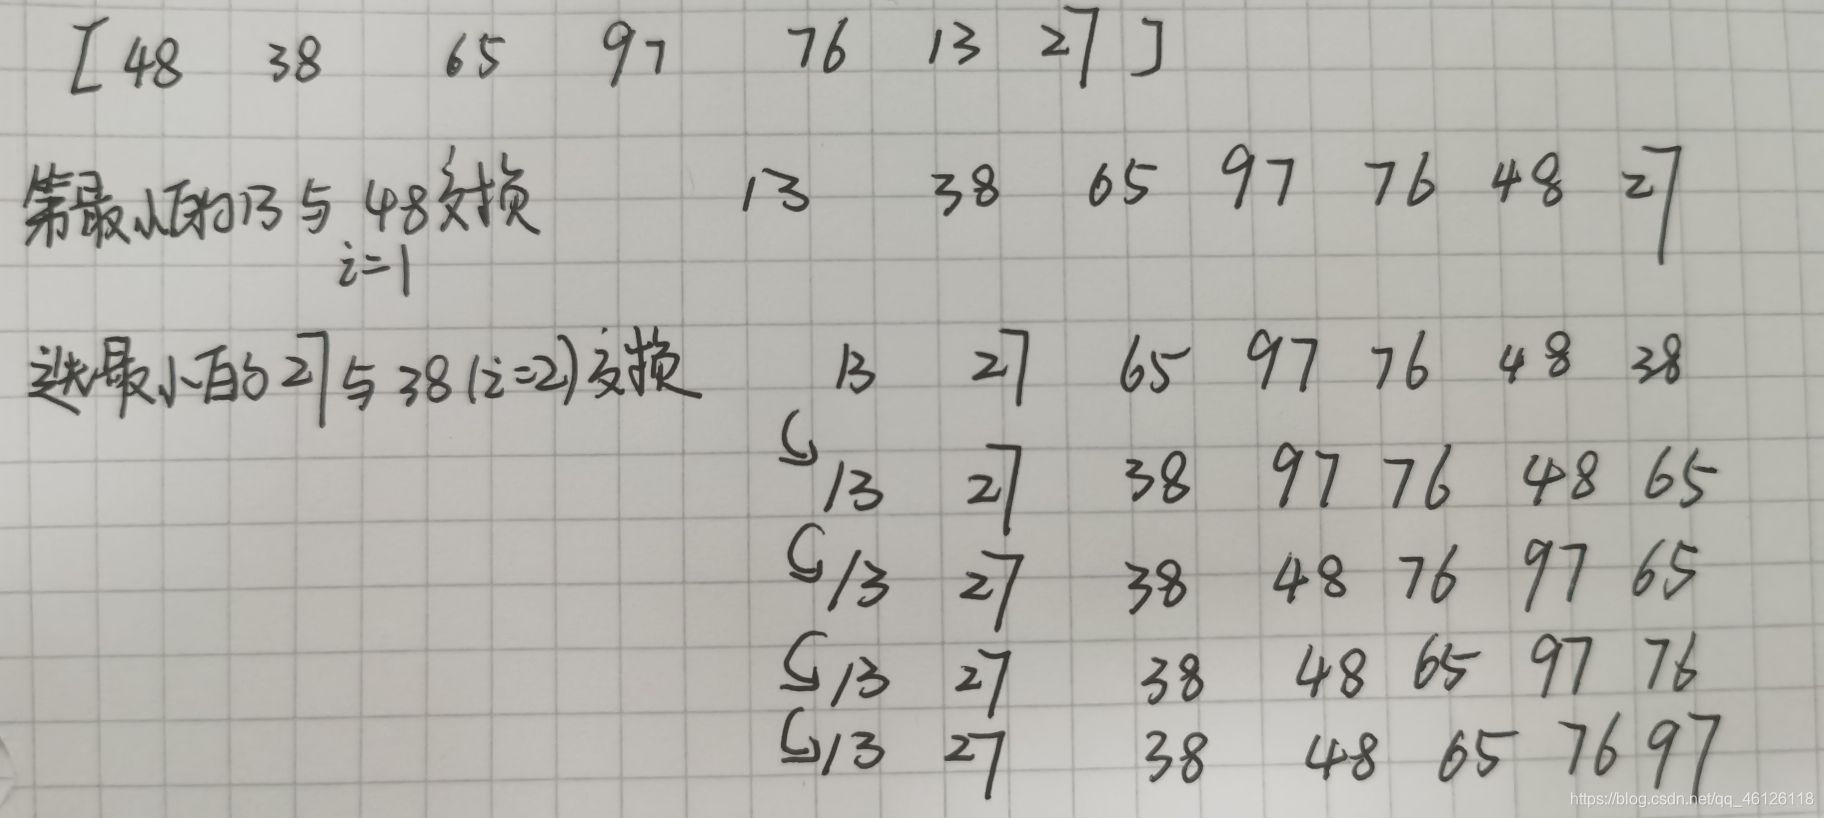 [ 48 38 65 97 76 13 27 ]
第最小的13与48交换 13 38 65 97 76 48 27
i=1
选最小的27与38(i=2)交换 13 27 65 97 76 48 38
13 27 38 97 76 48 65
13 27 38 48 76 97 65
13 27 38 48 65 97 76
13 27 38 48 65 76 97
https://blog.csdn.net/qq_46126118